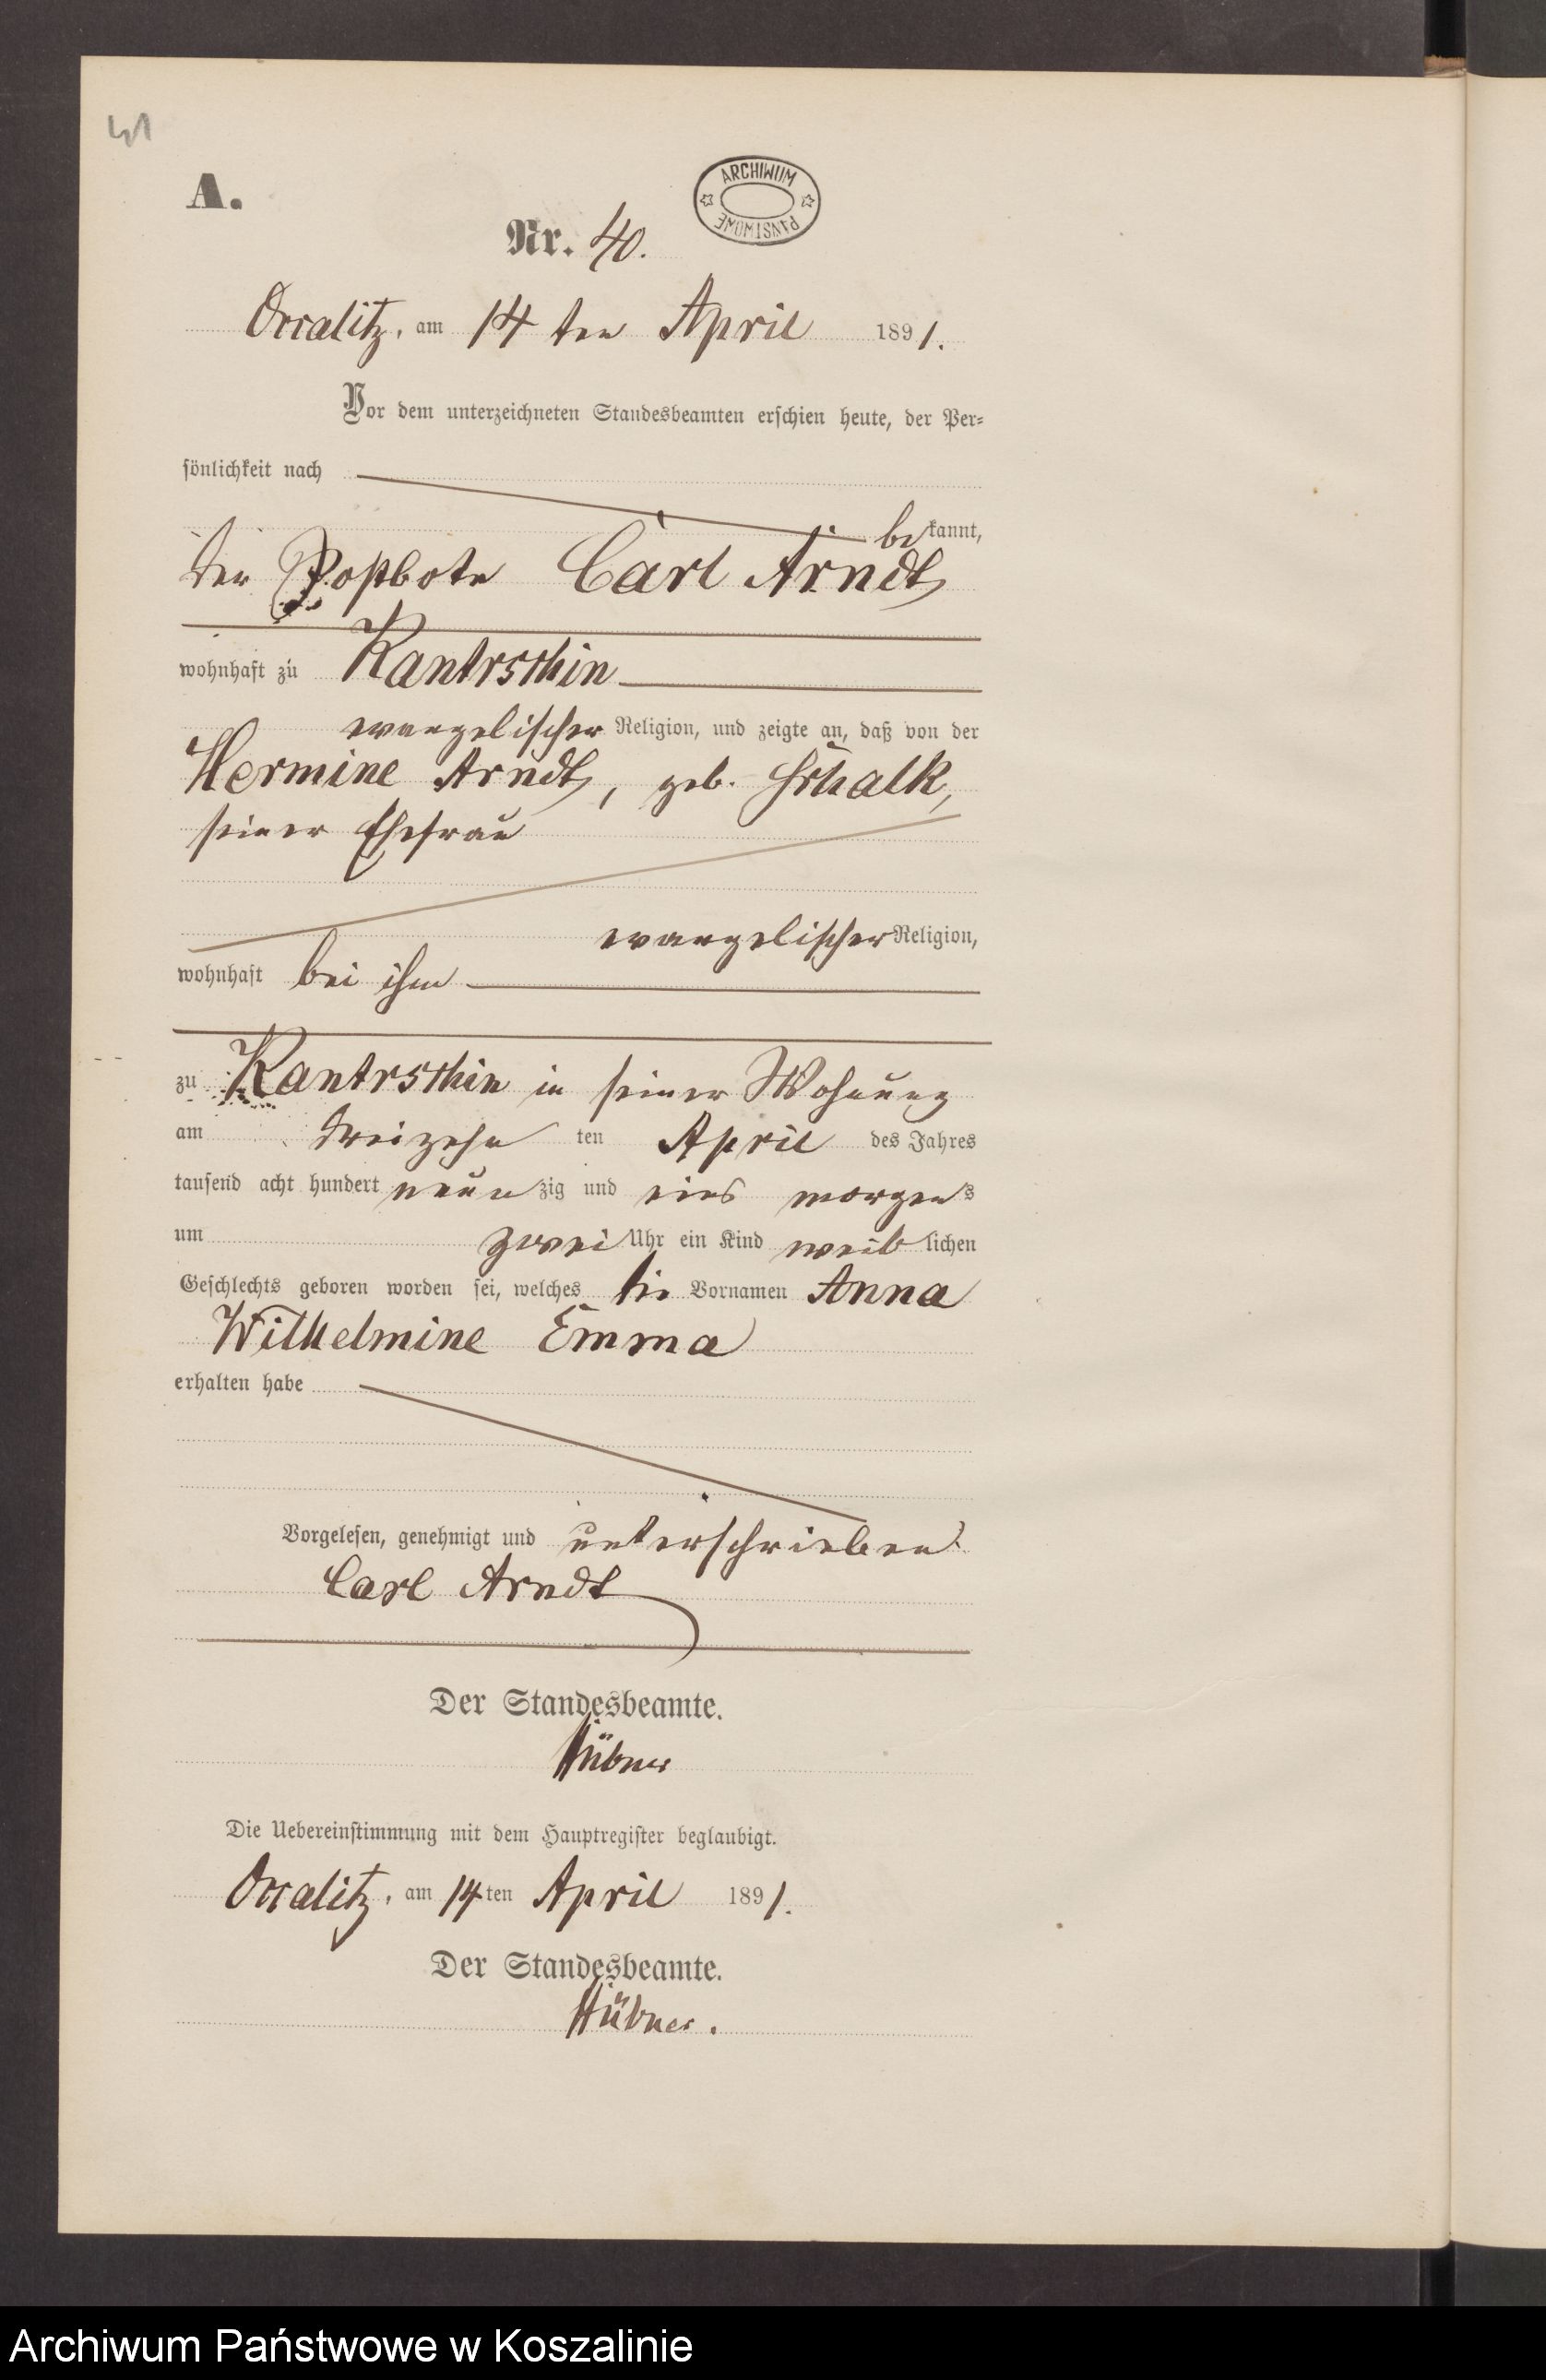 41
A.
ARCHIWUM PAŃSTWOWE
Nr. 40.
Occalitz, am 14ten April 1891.
Vor dem unterzeichneten Standesbeamten erschien heute, der Per-
sönlichkeit nach
bekannt,
der Postbote Carl Arndt,
wohnhaft zu Kantrschin
evangelischer Religion, und zeigte an, daß von der
Hermine Arndt, geb. Schalk,
seiner Ehefrau
evangelischer Religion,
wohnhaft bei ihm
zu Kantrschin in seiner Wohnung
am dreizehnten April des Jahres
tausend acht hundert neunzig und eins morgens
um zwei Uhr ein Kind weiblichen
Geschlechts geboren worden sei, welches die Vornamen Anna
Wilhelmine Emma
erhalten habe
Vorgelesen, genehmigt und unterschrieben.
Carl Arndt
Der Standesbeamte.
Hübner
Die Uebereinstimmung mit dem Hauptregister beglaubigt.
Occalitz, am 14ten April 1891.
Der Standesbeamte.
Hübner.
Archiwum Państwowe w Koszalinie